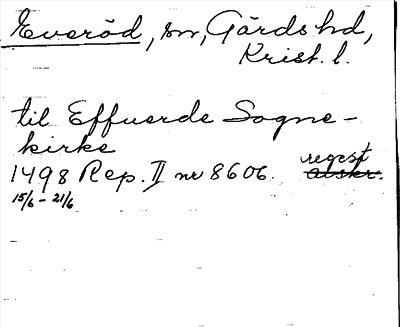 Everöd, sn, Gärds hd,
Krist. l.
til Effuerde Sogne-
kirke
1498 Rep. II nr 8606. regest
avskr.
15/6 - 21/6